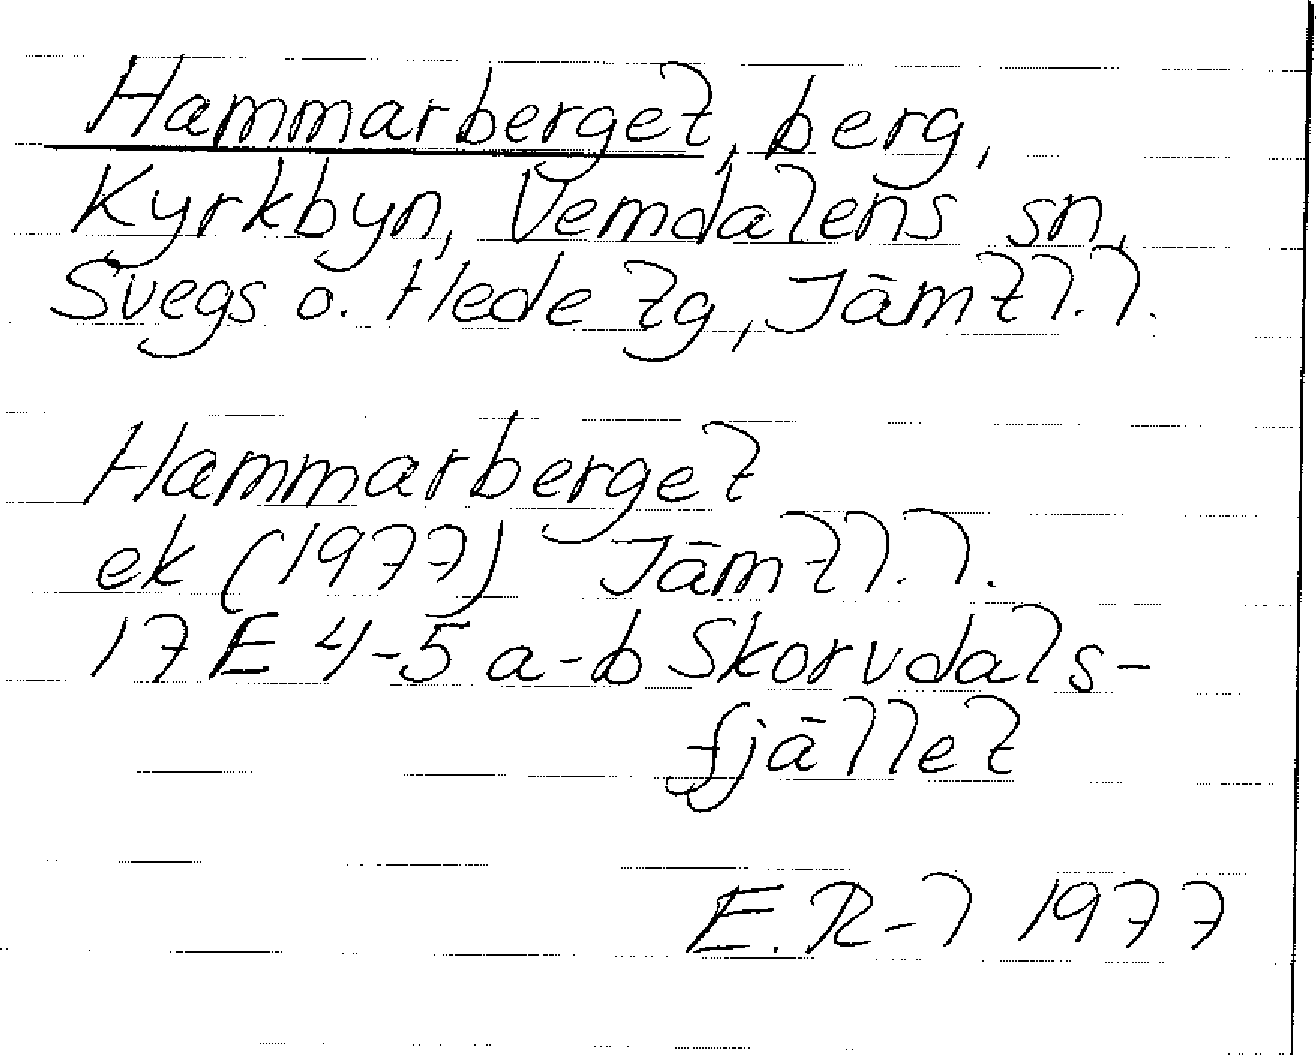 Hammarberget, berg,
Kyrkbyn, Vemdalens sn,
Svegs o. Hede tg, Jämtl.l.
Hammarberget
ek (1977) Jämtl.l.
17 E 4-5 a-b Skorvdals-
fjället
E.R-l 1977